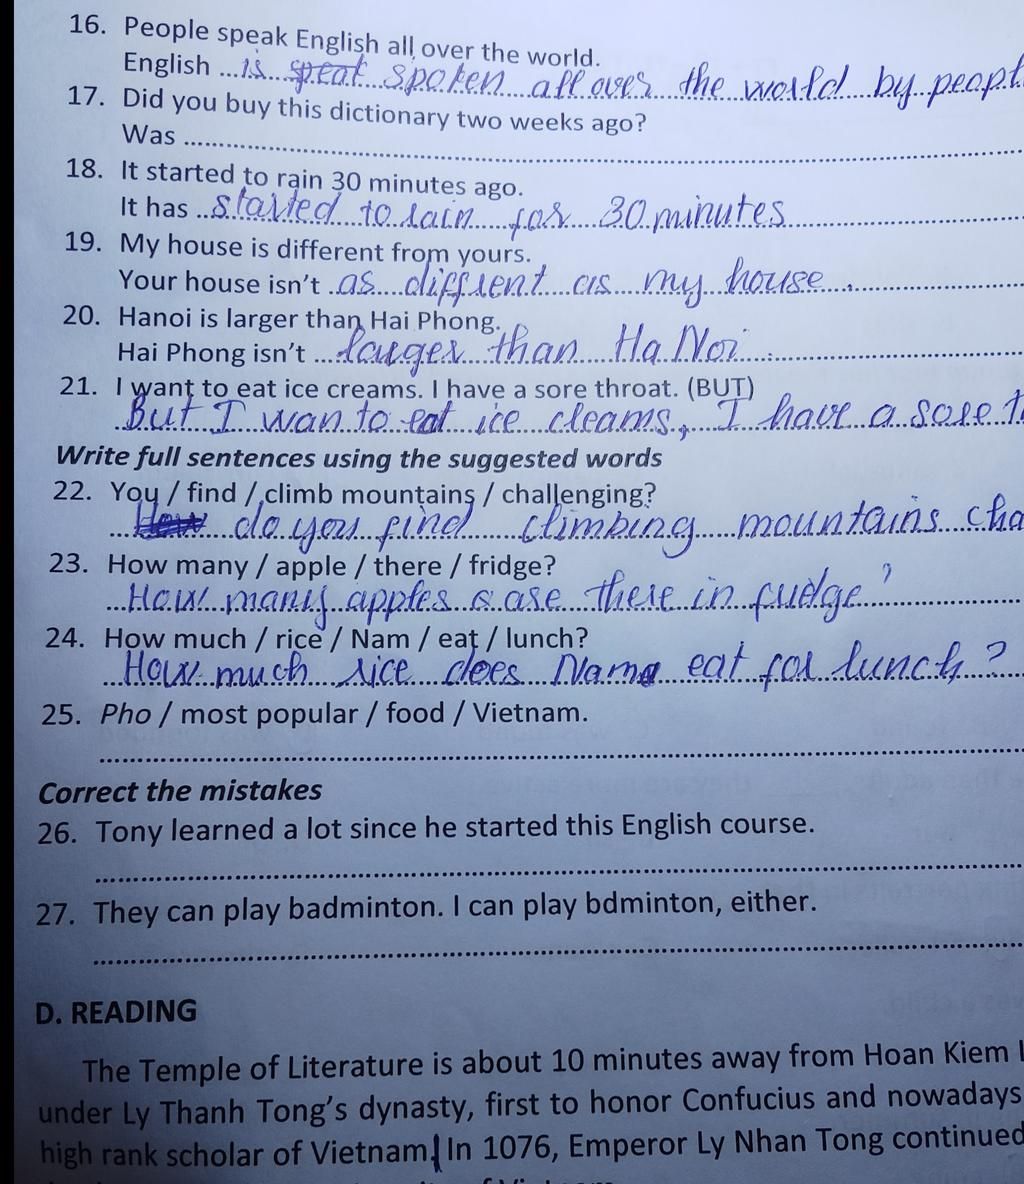 16. People speak English all over the world.
English ...is speak spoken all over the world by peopl
17. Did you buy this dictionary two weeks ago?
Was ........................................
18. It started to rain 30 minutes ago.
It has ..started to rain for 30 minutes
19. My house is different from yours.
Your house isn't .as diffrent as my house
20. Hanoi is larger than Hai Phong.
Hai Phong isn't ...larger than Ha Noi
21. I want to eat ice creams. I have a sore throat. (BUT)
But I wan to eat ice cleams, I have a sore t
Write full sentences using the suggested words
22. You / find / climb mountains / challenging?
do you find climbing mountains cha
23. How many / apple / there / fridge?
How many apples are there in fudge?
24. How much / rice / Nam / eat / lunch?
How much rice does Nam eat for lunch?
25. Pho / most popular / food / Vietnam.
........................................
Correct the mistakes
26. Tony learned a lot since he started this English course.
........................................
27. They can play badminton. I can play bdminton, either.
........................................
D. READING
The Temple of Literature is about 10 minutes away from Hoan Kiem L
under Ly Thanh Tong's dynasty, first to honor Confucius and nowadays
high rank scholar of Vietnam. In 1076, Emperor Ly Nhan Tong continued